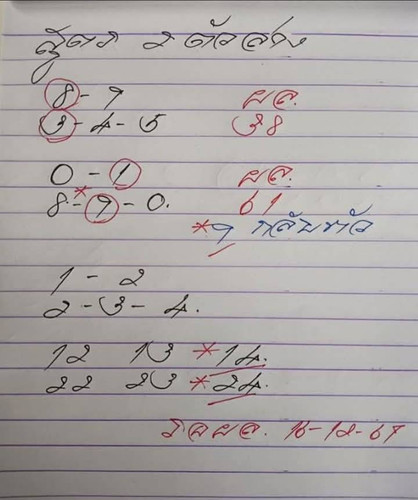 สูตร 2 ตัวล่าง
8 - 9 ผล.
3 - 4 - 5 38
0 - 1 ผล.
8 - *9 - 0. 61
*9 กลับหัว
1 - 2
2 - 3 - 4.
12 13 *14.
22 23 *24.
รอผล. 16-12-67